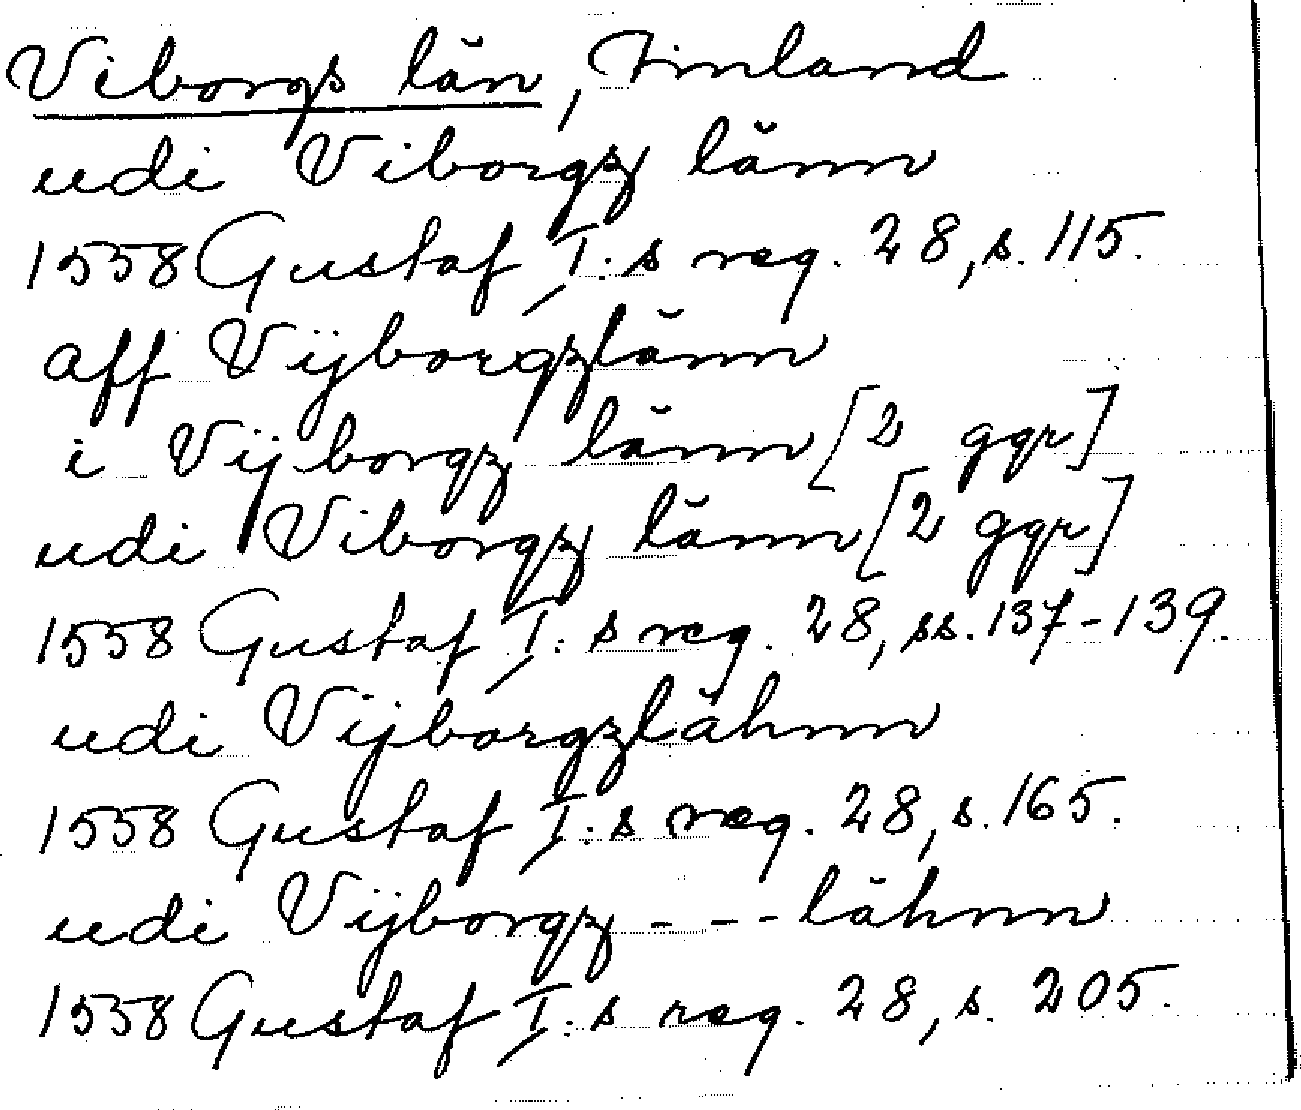 Viborgs län, Finland
udi Viborgz länn
1558 Gustaf I:s reg. 28, s. 115.
aff Vijborgzlänn
i Vijborgz länn [2 ggr]
udi Viborgz länn [2 ggr]
1558 Gustaf I:s reg. 28, ss. 137-139.
udi Vijborgzlähnn
1558 Gustaf I:s reg. 28, s. 165.
udi Vijborgz --- lähnn
1558 Gustaf I:s reg. 28, s. 205.